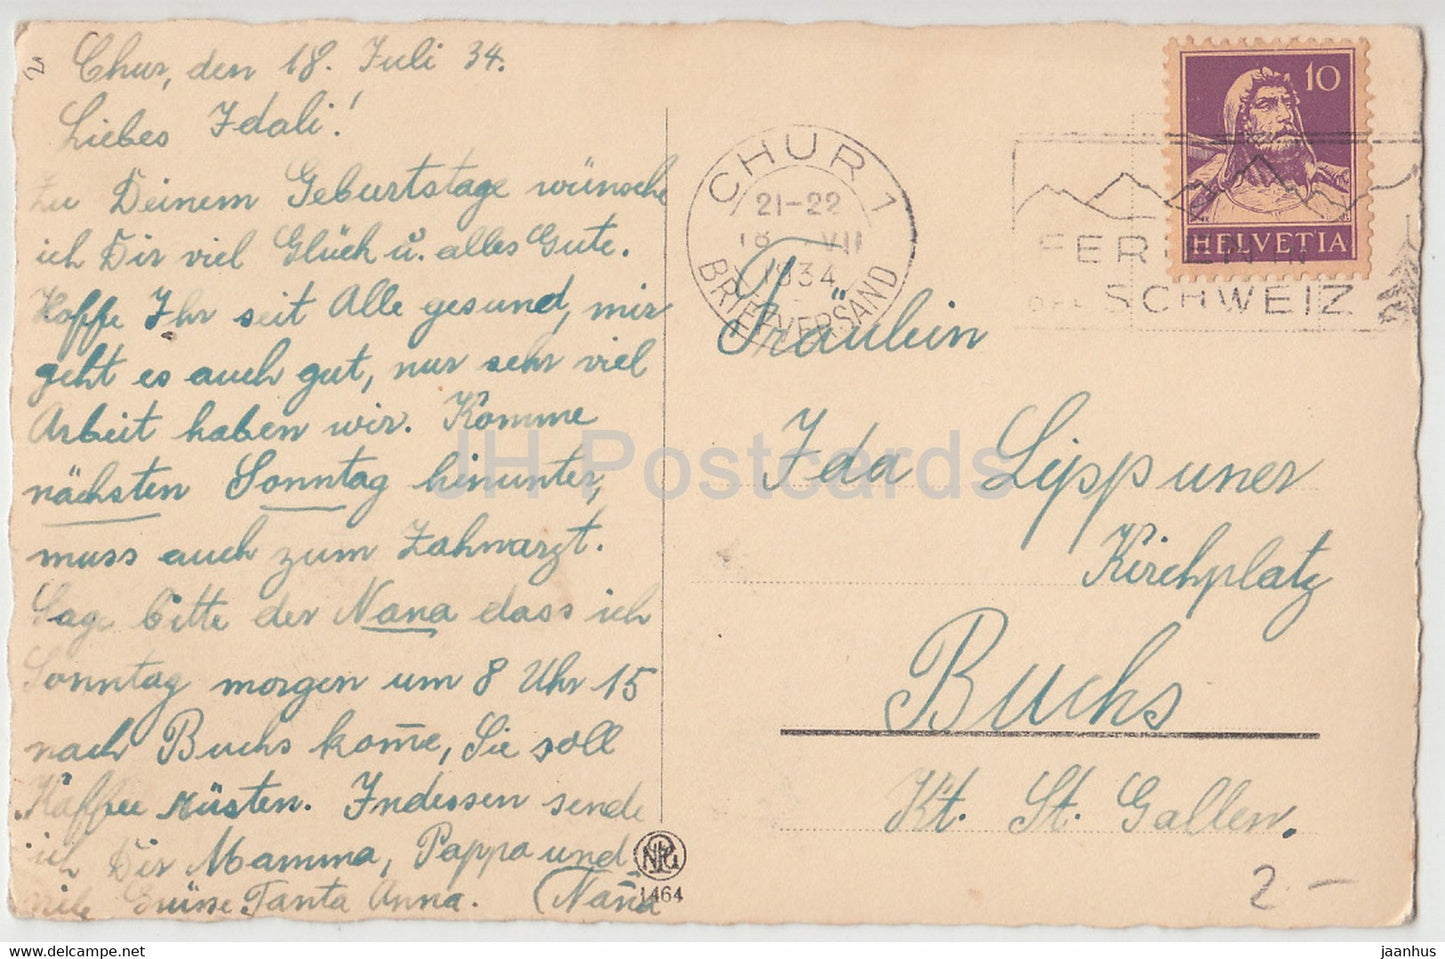 Chur, den 18. Juli 34.
Liebes Idali!
Zu Deinem Geburtstage wünsche
ich Dir viel Glück u. alles Gute.
Hoffe Ihr seit Alle gesund, mir
geht es auch gut, nur sehr viel
Arbeit haben wir. Komme
nächsten Sonntag hinunter,
muss auch zum Zahnarzt.
Sage bitte der Nana dass ich
Sonntag morgen um 8 Uhr 15
nach Buchs kom̅e, Sie soll
Kaffee rüsten. Indessen sende
ich Dir Mamma, Pappa und
viele Grüsse Tanta Anna. (Nana
NPG
1464
CHUR 1
21-22
18 VII
1934
BRIEFVERSAND
10
HELVETIA
FERIEN IN
DER SCHWEIZ
Fräulein
Ida Lippuner
Kirchplatz
Buchs
Kt. St. Gallen.
2 –
JH Postcards
https://www.ebay.com/str/jhpostcards
jaanhus